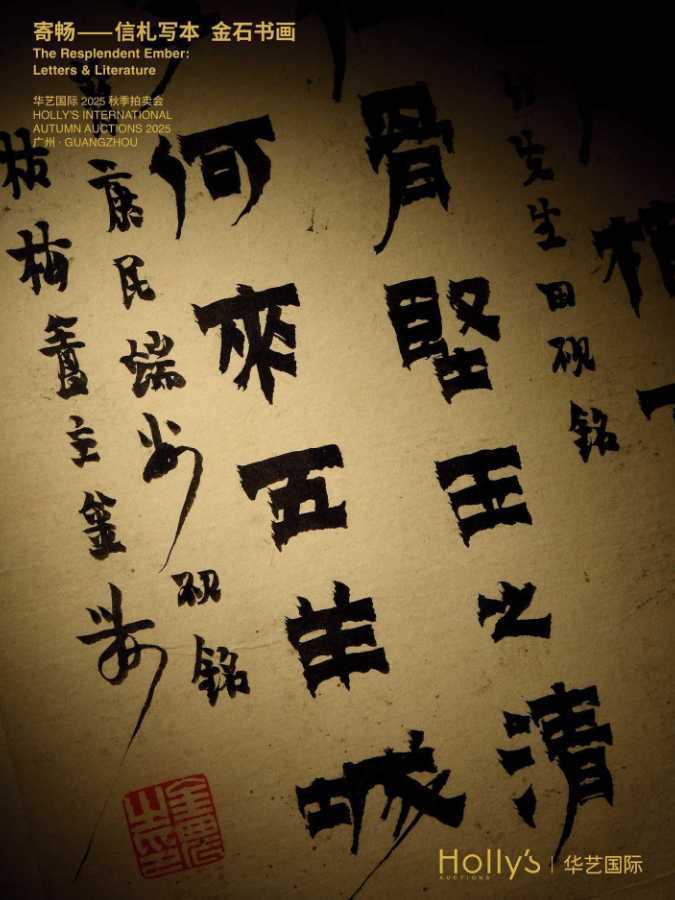 寄畅——信札写本 金石书画
The Resplendent Ember:
Letters & Literature
华艺国际 2025 秋季拍卖会
HOLLY'S INTERNATIONAL
AUTUMN AUCTIONS 2025
广州·GUANGZHOU
先生田硯銘
骨堅玉之清
何來五羊城
康民端州硯銘
枝梅主
金農之印
Holly's
AUCTIONS
华艺国际